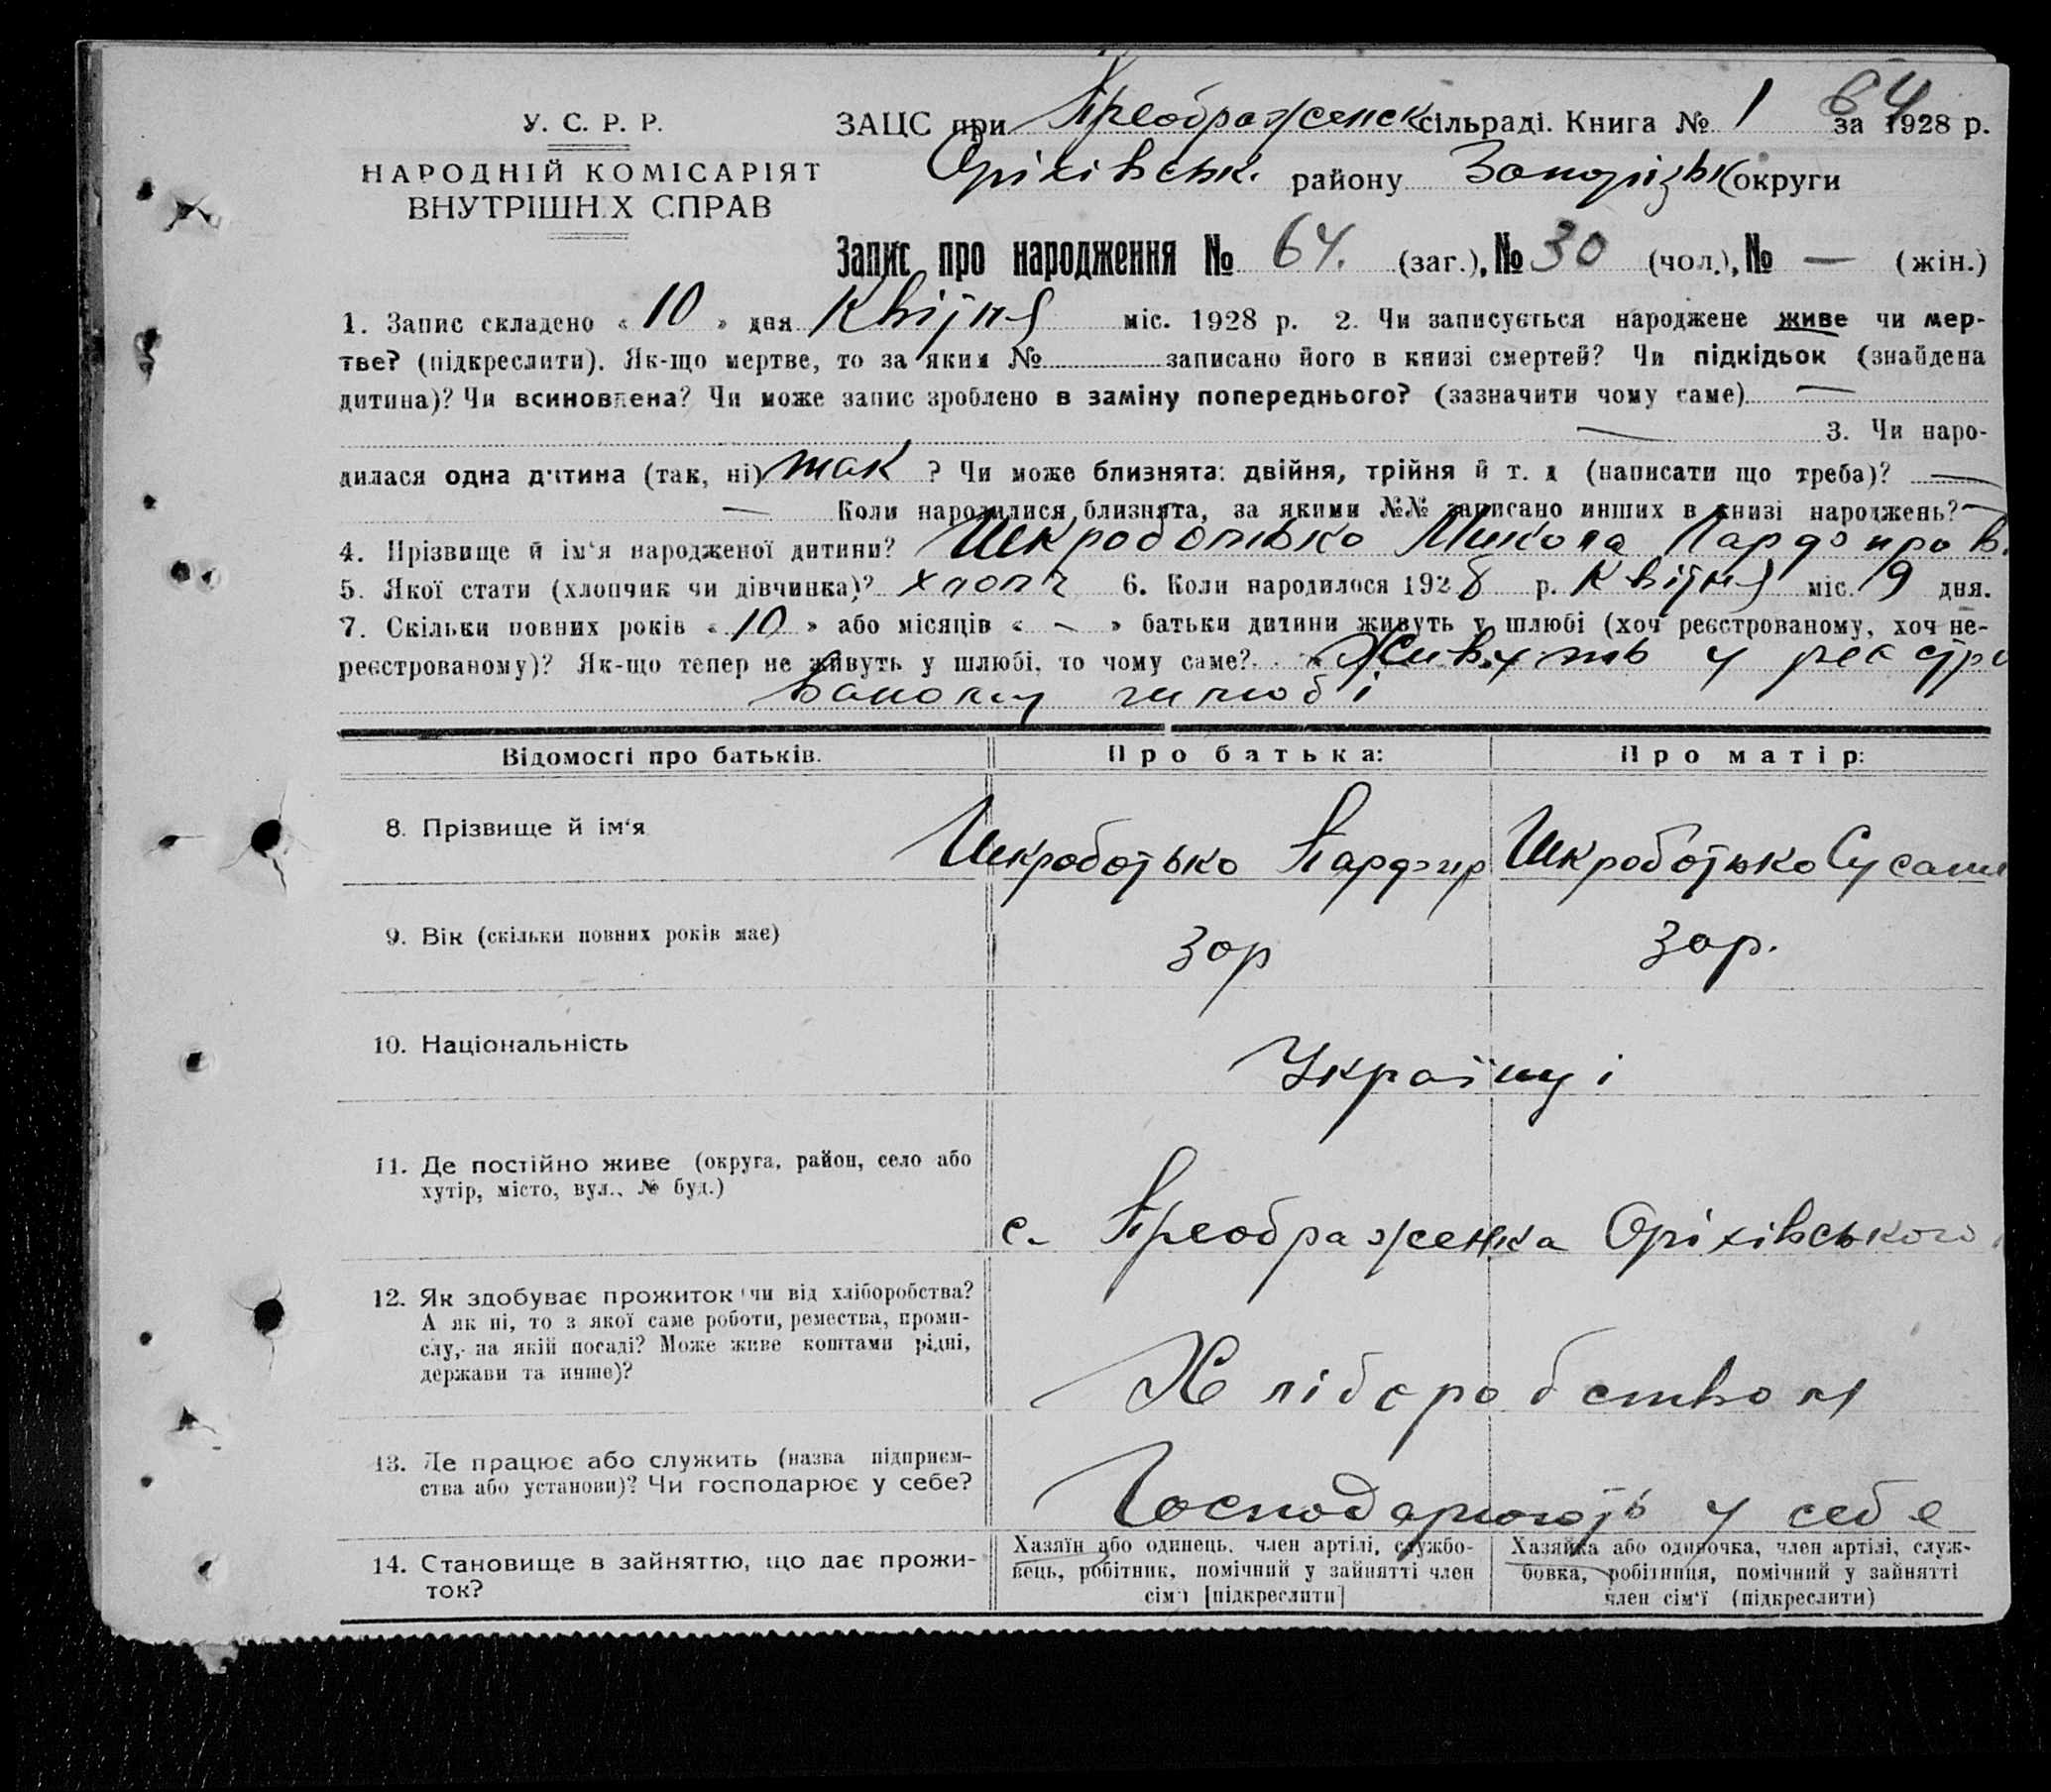 64
У. С. Р. Р.
НАРОДНІЙ КОМІСАРІЯТ
ВНУТРІШНІХ СПРАВ
ЗАЦС при Преображенск сільраді. Книга № 1 за 1928 р.
Оріхівськ. району Запорізьк округи
Запис про народження № 64. (заг.), № 30 (чол.), № — (жін.)
1. Запис складено « 10 » дня Квітня міс. 1928 р. 2. Чи записується народжене живе чи мер-
тве? (підкреслити). Як-що мертве, то за яким № записано його в книзі смертей? Чи підкідьок (знайдена
дитина)? Чи всиновлена? Чи може запис зроблено в заміну попереднього? (зазначити чому саме) —
— 3. Чи наро-
дилася одна дитина (так, ні) так ? Чи може близнята: двійня, трійня й т. д (написати що треба)? —
— Коли народилися близнята, за якими №№ записано инших в книзі народжень? —
4. Прізвище й ім'я народженої дитини? Шкроботько Микола
5. Якої стати (хлопчик чи дівчинка)? хлопч 6. Коли народилося 1928 р. Квітня міс. 9 дня.
7. Скільки повних років « 10 » або місяців « - » батьки дитини живуть у шлюбі (хоч реєстрованому, хоч не-
реєстрованому)? Як-що тепер не живуть у шлюбі, то чому саме? Живуть у реєстро
ваному шлюбі
Відомості про батьків. Про батька: Про матір:
8. Прізвище й ім'я Шкроботько Парфир Шкроботько Сусана
9. Вік (скільки повних років має) 30р 30р.
10. Національність Українці
11. Де постійно живе (округа, район, село або
хутір, місто, вул., № буд.)
с. Преображенка Оріхівського
12. Як здобуває прожиток чи від хліборобства?
А як ні, то з якої саме роботи, ремества, проми-
слу, на якій посаді? Може живе коштами рідні,
держави та инше)?
Хліборобством
13. Де працює або служить (назва підприєм-
ства або установи)? Чи господарює у себе?
Господарюють у себе
14. Становище в зайняттю, що дає прожи-
ток?
Хазяїн або одинець, член артілі, службо-
вець, робітник, помічний у зайнятті член
сім'ї [підкреслити]
Хазяйка або одиночка, член артілі, служ-
бовка, робітниця, помічний у зайнятті
член сім'ї (підкреслити)